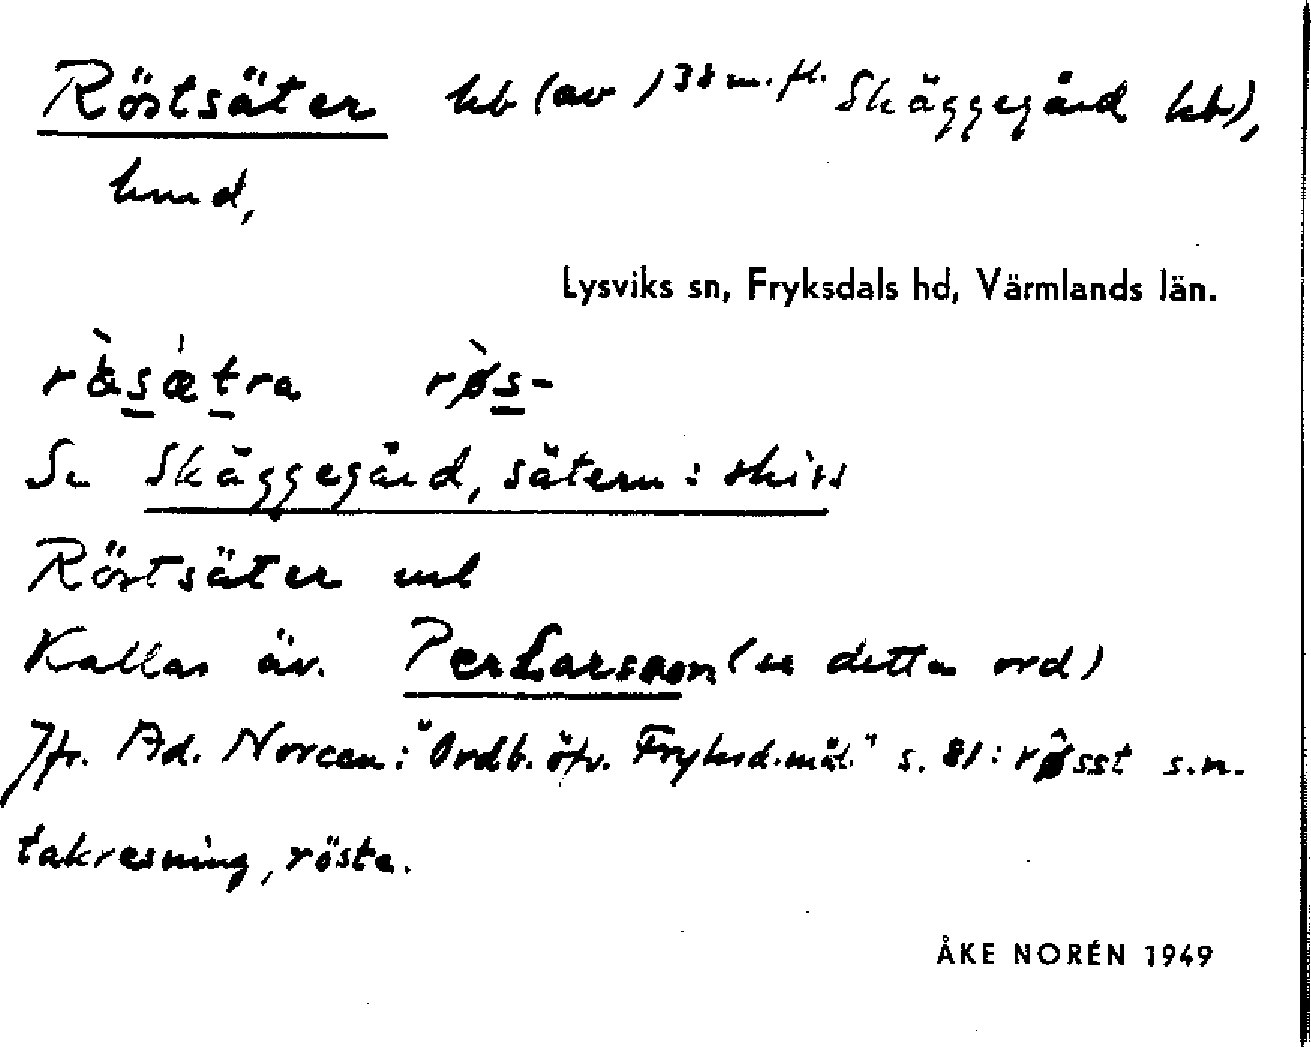 Röstsäter hb (av 1³⁸ m.fl. Skäggegård hb),
hmd,
Lysviks sn, Fryksdals hd, Värmlands län.
røs-
Se Skäggegård, sätern: skiss
Röstsäter
Kallas äv. PerLarsson (se detta ord)
Jfr. Ad. Noreen: "Ordb. öfv. Fryksd.mål." s. 81: røsst s.n.
takresning, röste.
ÅKE NORÉN 1949